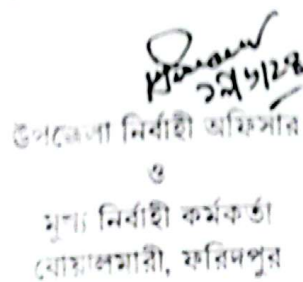 ২৯/৮/২৪
উপজেলা নির্বাহী অফিসার
ও
মুখ্য নির্বাহী কর্মকর্তা
বোয়ালমারী, ফরিদপুর